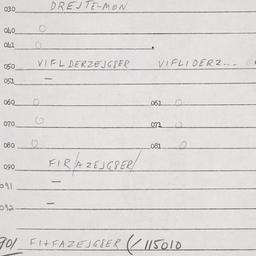 030 DREJTE-MON
040 O
041 O
050 VIFLDERZEJGSER VIFLIDERZ...
051 –
060 O 061 O
070 O 071 O
080 O 081 O
090 FIR/AZEJGSER/
091 –
092 –
901 FIHFAZEJGSER (/115010